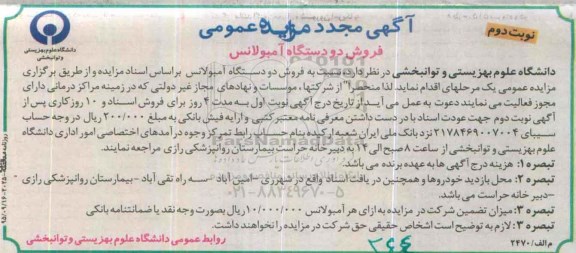 آگهی مجدد مزایده عمومی
نوبت دوم
فروش دو دستگاه آمبولانس
دانشگاه علوم بهزیستی و توانبخشی
دانشگاه علوم بهزیستی و توانبخشی در نظر دارد نسبت به فروش دو دستگاه آمبولانس براساس اسناد مزایده و از طریق برگزاری
مزایده عمومی یک مرحله‎ای اقدام نماید. لذا منحصراً از شرکتها، موسسات و نهادهای مجاز غیر دولتی که در زمینه مراکز درمانی دارای
مجوز فعالیت می نمایند دعوت به عمل می آید از تاریخ درج آگهی نوبت اول به مدت ۴ روز برای فروش اسناد و ۱۰ روز کاری پس از
آگهی نوبت دوم جهت عودت اسناد با در دست داشتن معرفی نامه معتبر کتبی و ارایه فیش بانکی به مبلغ ۲۰۰/۰۰۰ ریال در وجه حساب
سیبای ۲۱۷۸۴۶۹۰۰۷۰۰۴ نزد بانک ملی ایران شعبه ارکیده بنام حساب رابط تمرکز وجوه درآمدهای اختصاصی امور اداری دانشگاه
علوم بهزیستی و توانبخشی از ساعت ۸ صبح الی ۱۴ به دبیرخانه حراست بیمارستان روانپزشکی رازی مراجعه نمایند.
تبصره ۱: هزینه درج آگهی ها به عهده برنده می باشد.
تبصره ۲: محل بازدید خودروها و همچنین دریافت اسناد واقع در شهرری - امین آباد - سه راه تقی آباد - بیمارستان روانپزشکی رازی
- دبیرخانه حراست می باشد.
تبصره ۳: میزان تضمین شرکت در مزایده به ازای هر آمبولانس ۱۰/۰۰۰/۰۰۰ ریال بصورت وجه نقد یا ضمانتنامه بانکی
تبصره ۳: لازم به توضیح است اشخاص حقیقی حق شرکت در مزایده را نخواهند داشت.
م الف/۲۴۷۰
روابط عمومی دانشگاه علوم بهزیستی و توانبخشی
۰۲۱-۸۸۳۴۹۶۷۰-۵